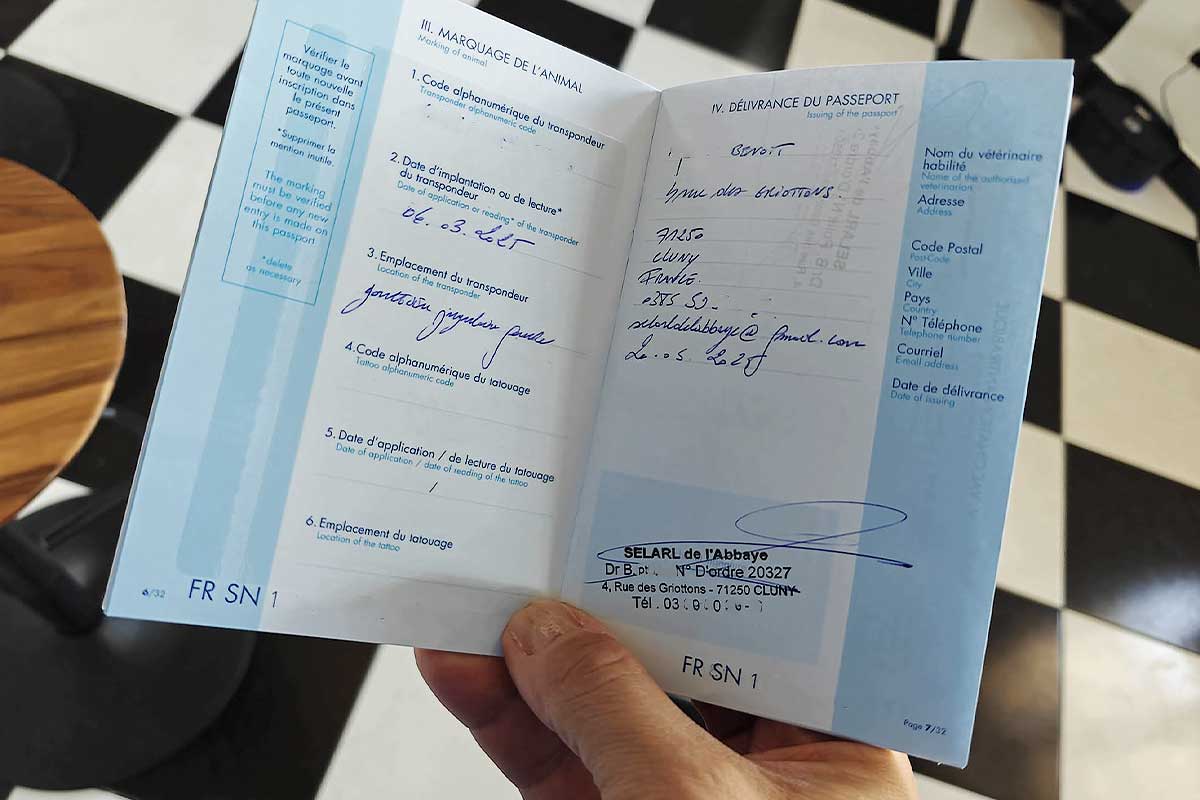 Vérifier le
marquage avant
toute nouvelle
inscription dans
le présent
passeport.
*Supprimer la
mention inutile.
The marking
must be verified
before any new
entry is made on
this passport
*delete
as necessary
III. MARQUAGE DE L'ANIMAL
Marking of animal
1. Code alphanumérique du transpondeur
Transponder alphanumeric code
2. Date d'implantation ou de lecture*
du transpondeur
Date of application or reading* of the transponder
06.03.2025
3. Emplacement du transpondeur
Location of the transponder
gouttière jugulaire gauche
4. Code alphanumérique du tatouage
Tattoo alphanumeric code
5. Date d'application / de lecture du tatouage
Date of application / date of reading of the tattoo
/
6. Emplacement du tatouage
Location of the tattoo
6/32
FR SN 1
IV. DÉLIVRANCE DU PASSEPORT
Issuing of the passport
BENOIT
rue des GRIOTTONS
71250
CLUNY
FRANCE
0385 59
selarldelabbaye@gmail.com
20.05.2025
Nom du vétérinaire
habilité
Name of the authorised
veterinarian
Adresse
Address
Code Postal
Post-Code
Ville
City
Pays
Country
N° Téléphone
Telephone number
Courriel
E-mail address
Date de délivrance
Date of issuing
SELARL de l'Abbaye
Dr B. N° D'ordre 20327
4, Rue des Griottons - 71250 CLUNY
Tél. 03
FR SN 1
Page 7/32